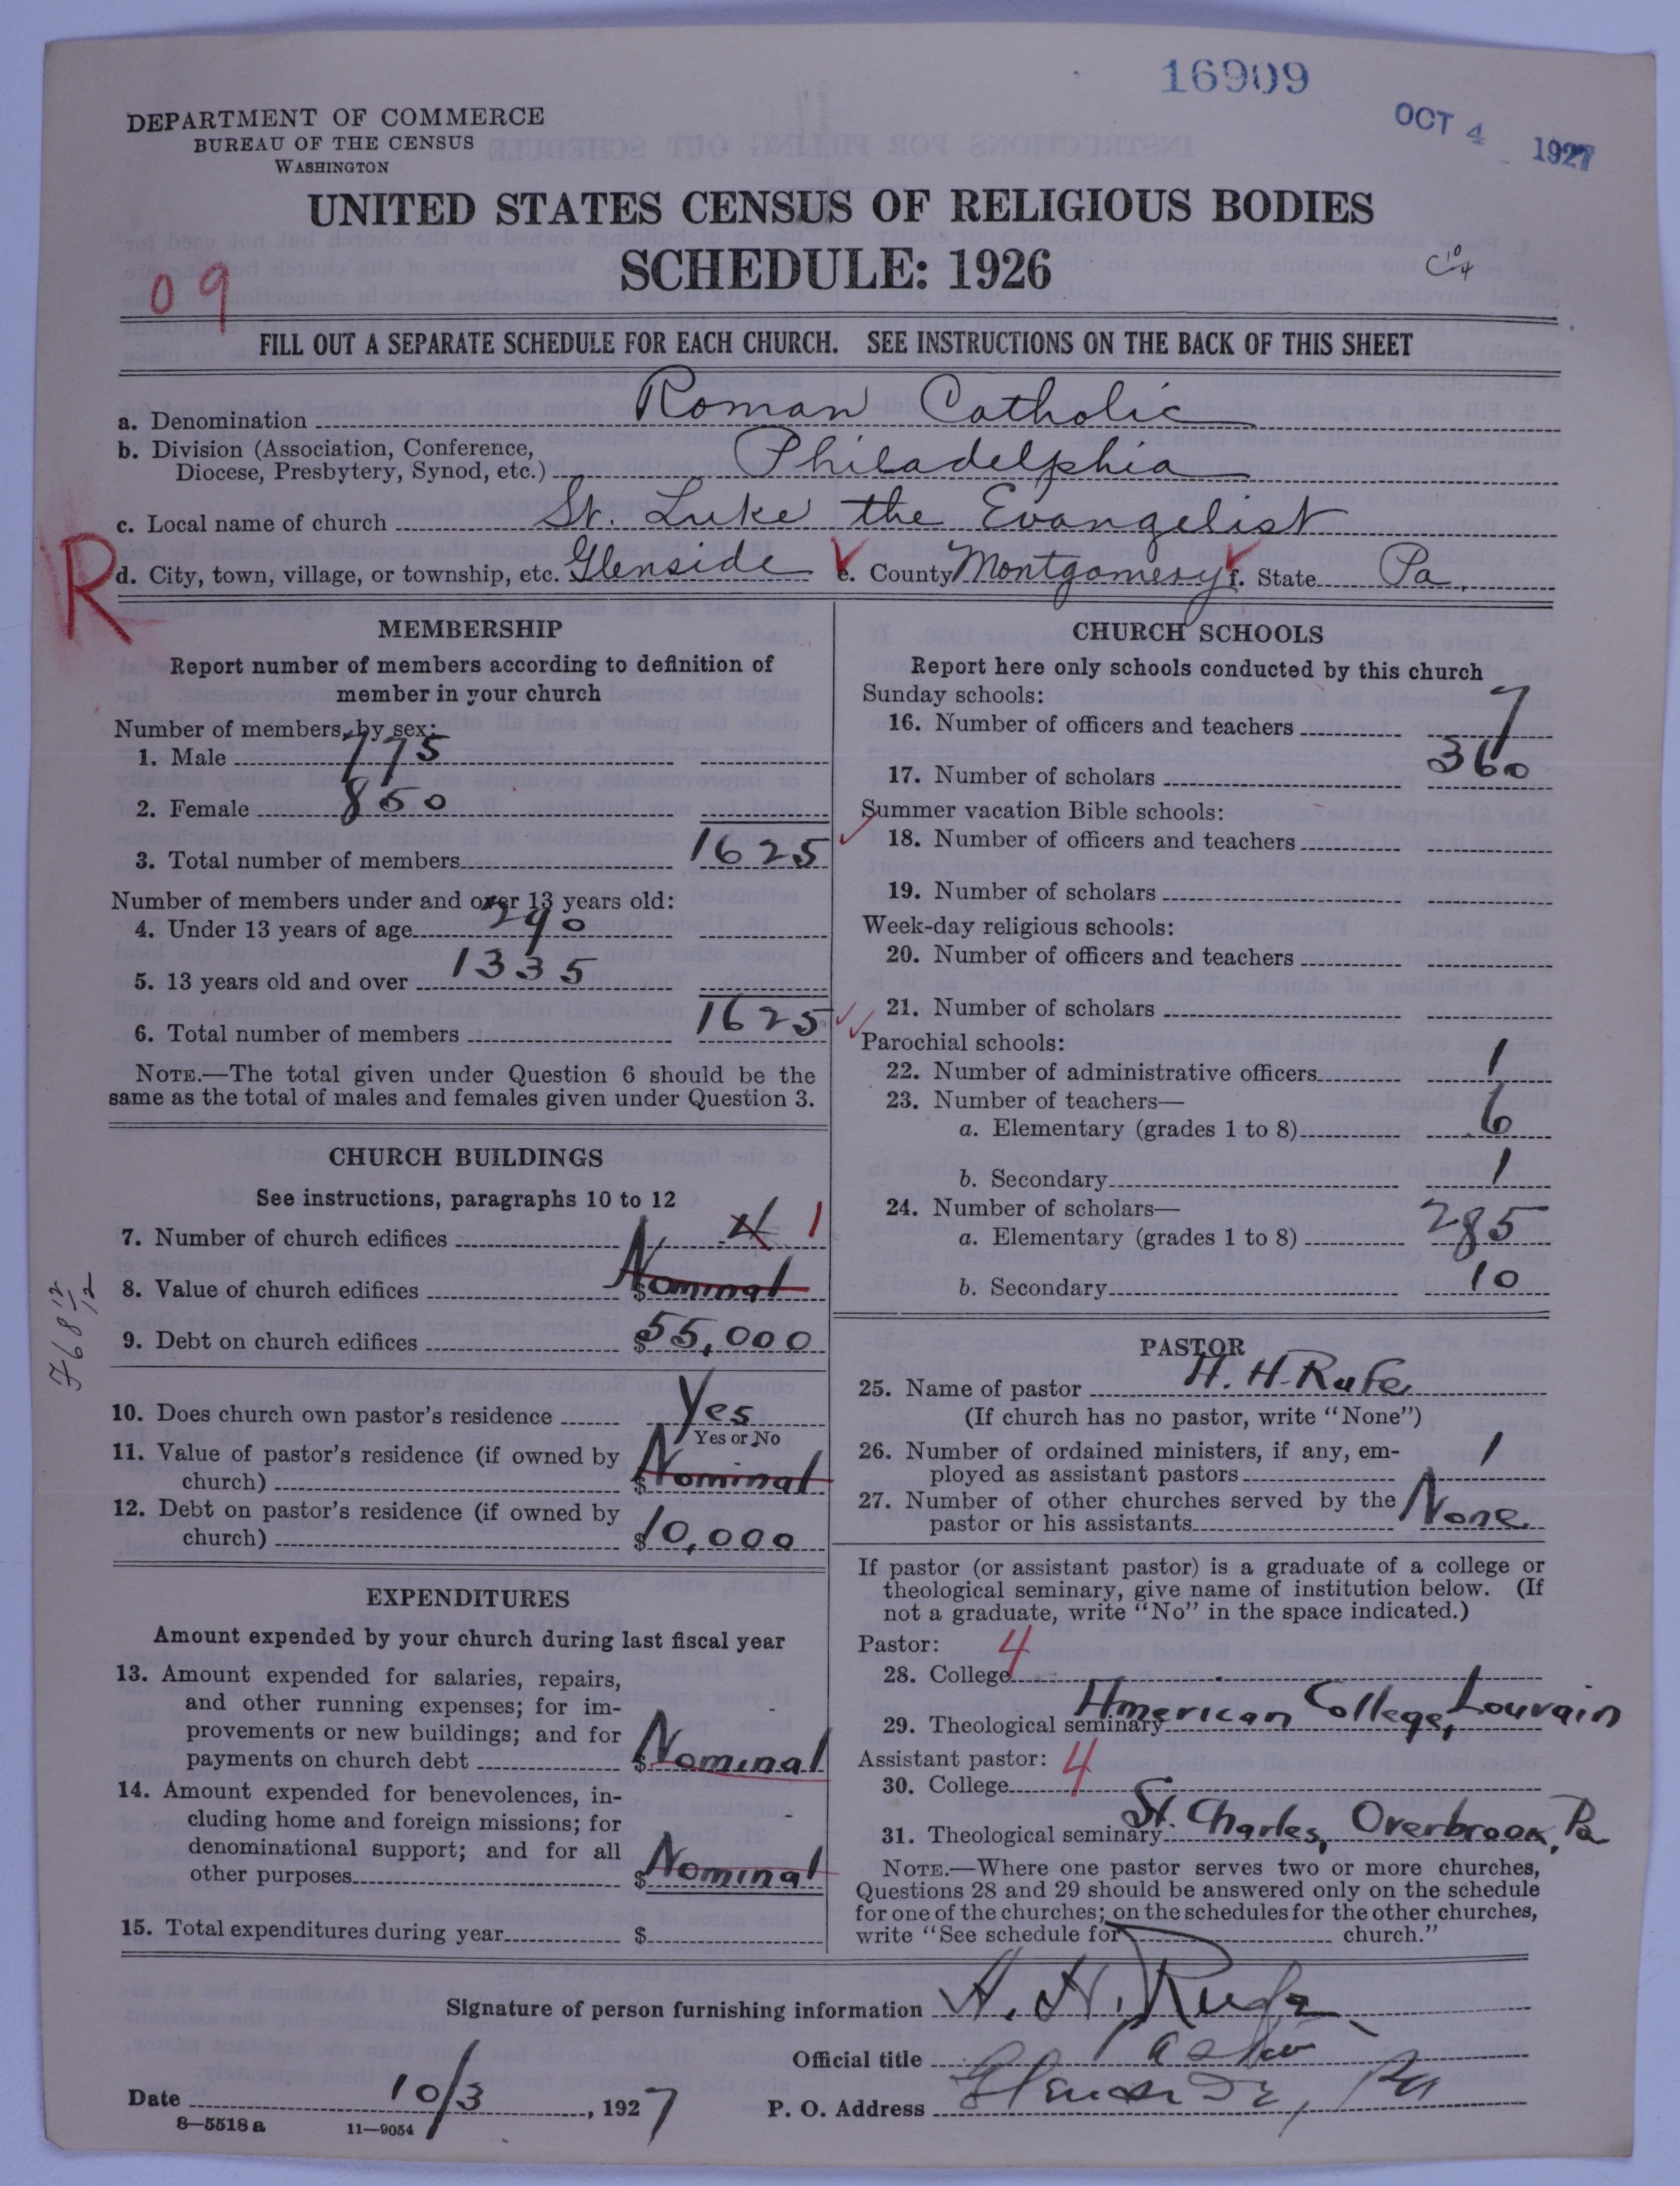 16909
OCT 4 1927
DEPARTMENT OF COMMERCE
BUREAU OF THE CENSUS
WASHINGTON
UNITED STATES CENSUS OF RELIGIOUS BODIES
SCHEDULE: 1926
09
FILL OUT A SEPARATE SCHEDULE FOR EACH CHURCH. SEE INSTRUCTIONS ON THE BACK OF THIS SHEET
a. Denomination Roman Catholic
b. Division (Association, Conference,
Diocese, Presbytery, Synod, etc.) Philadelphia
c. Local name of church St. Luke the Evangelist
R
d. City, town, village, or township, etc. Glenside e. County Montgomery f. State Pa.
MEMBERSHIP
Report number of members according to definition of
member in your church
Number of members, by sex:
1. Male 775
2. Female 850
3. Total number of members 1625
Number of members under and over 13 years old:
4. Under 13 years of age 290
5. 13 years old and over 1335
6. Total number of members 1625
NOTE.—The total given under Question 6 should be the
same as the total of males and females given under Question 3.
CHURCH BUILDINGS
See instructions, paragraphs 10 to 12
7. Number of church edifices 4 1
8. Value of church edifices $ Nominal
9. Debt on church edifices $ 55,000
10. Does church own pastor's residence Yes
Yes or No
11. Value of pastor's residence (if owned by
church) $ Nominal
12. Debt on pastor's residence (if owned by
church) $ 10,000
EXPENDITURES
Amount expended by your church during last fiscal year
13. Amount expended for salaries, repairs,
and other running expenses; for im-
provements or new buildings; and for
payments on church debt $ Nominal
14. Amount expended for benevolences, in-
cluding home and foreign missions; for
denominational support; and for all
other purposes $ Nominal
15. Total expenditures during year $
CHURCH SCHOOLS
Report here only schools conducted by this church
Sunday schools:
16. Number of officers and teachers 7
17. Number of scholars 360
Summer vacation Bible schools:
18. Number of officers and teachers
19. Number of scholars
Week-day religious schools:
20. Number of officers and teachers
21. Number of scholars
Parochial schools:
22. Number of administrative officers 1
23. Number of teachers—
a. Elementary (grades 1 to 8) 6
b. Secondary 1
24. Number of scholars—
a. Elementary (grades 1 to 8) 285
b. Secondary 10
PASTOR
25. Name of pastor H. H. Rufe
(If church has no pastor, write "None")
26. Number of ordained ministers, if any, em-
ployed as assistant pastors 1
27. Number of other churches served by the
pastor or his assistants None
If pastor (or assistant pastor) is a graduate of a college or
theological seminary, give name of institution below. (If
not a graduate, write "No" in the space indicated.)
Pastor: 4
28. College
29. Theological seminary American College, Louvain
Assistant pastor: 4
30. College
31. Theological seminary St. Charles, Overbrook, Pa
NOTE.—Where one pastor serves two or more churches,
Questions 28 and 29 should be answered only on the schedule
for one of the churches; on the schedules for the other churches,
write "See schedule for church."
Signature of person furnishing information H. H. Rufe
Official title Pastor
Date 10/3, 1927 P. O. Address Glenside, Pa
8—5518 a 11—9054